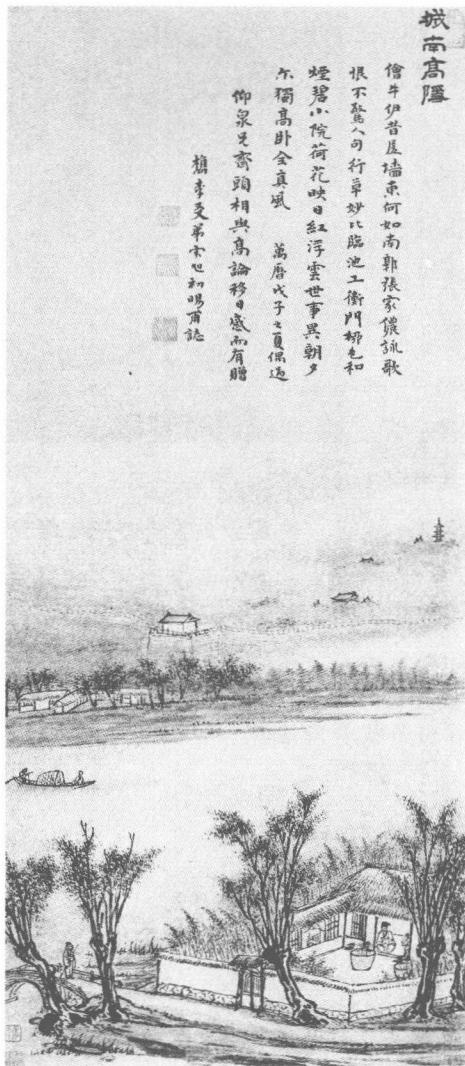 城南高隱
儈牛伊昔居墻東何如南郭張家儂詠歌
恨不驚人句行草妙比臨池工衡門柳色和
煙碧小院荷花映日紅浮雲世事異朝夕
尓獨高卧全真風 萬曆戊子之夏偶過
仰泉兄齋頭相與高論移日感而有贈
檇李友弟宋旭初暘甫誌